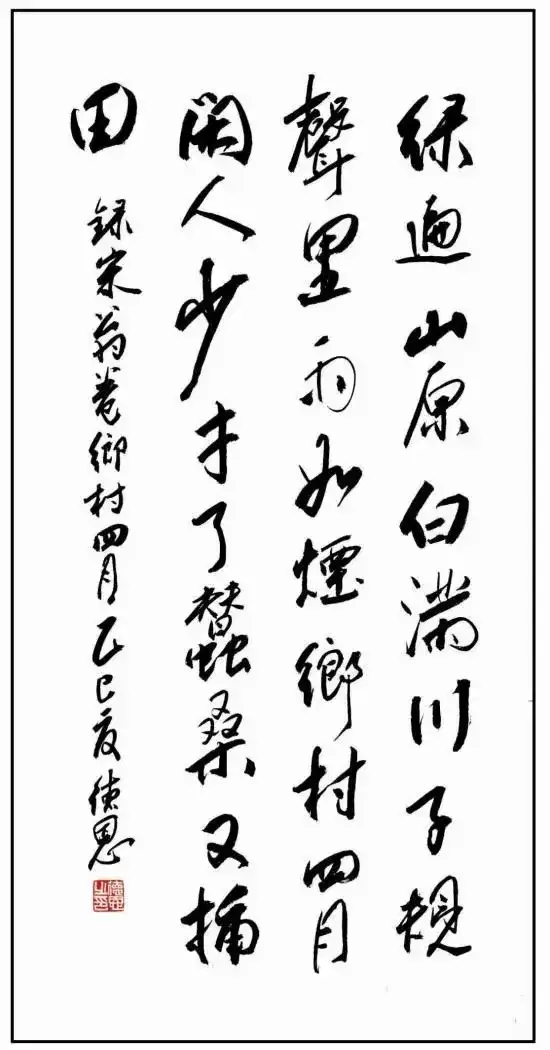 緑遍山原白滿川子規
聲里雨如煙鄉村四月
閑人少才了蠶桑又插
田
録宋翁卷鄉村四月乙巳夏德恩
德恩之印